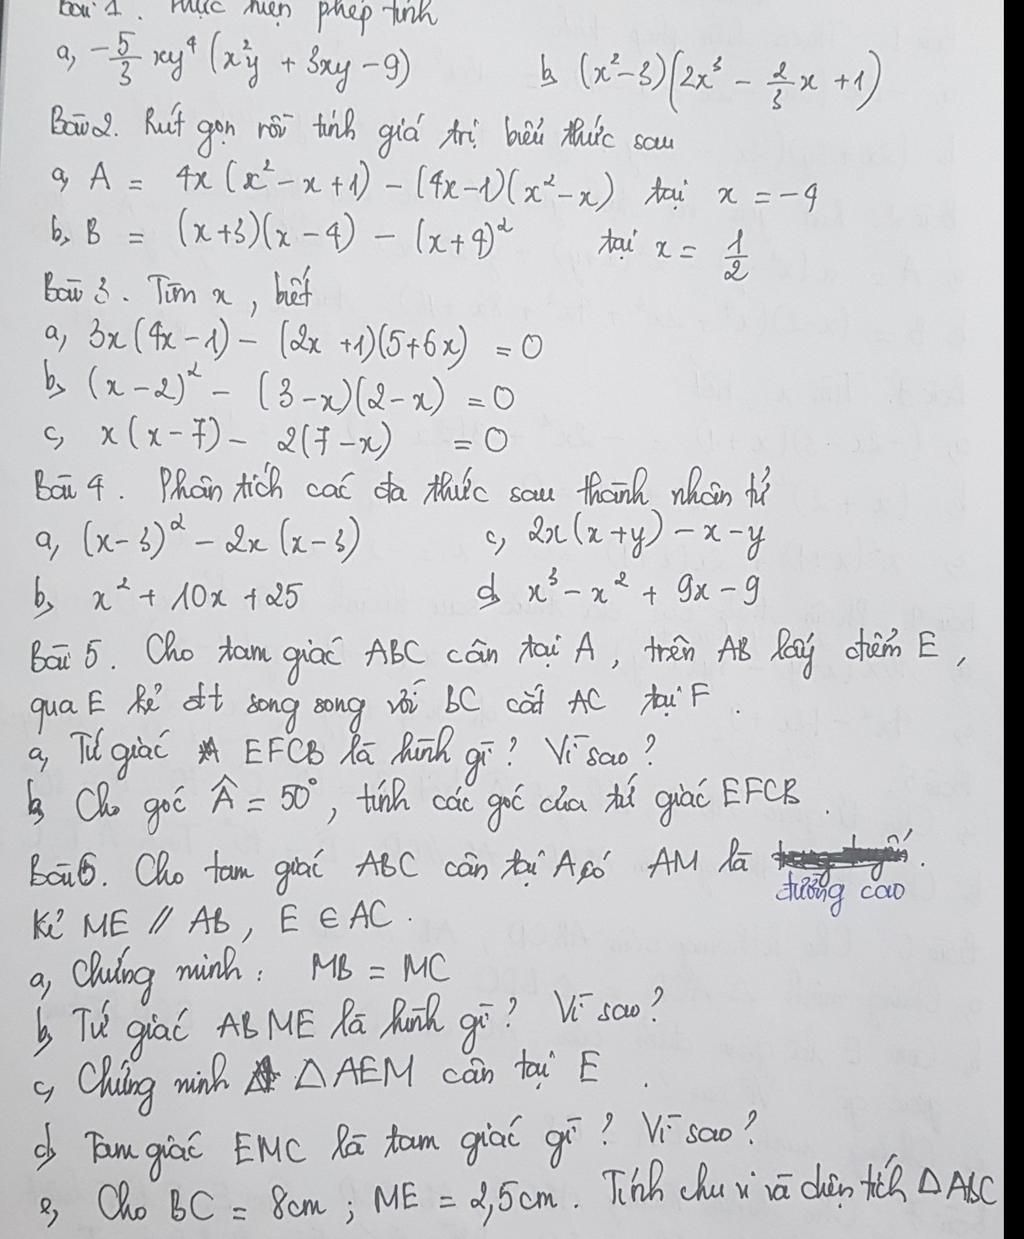 Bài 1. Thực hiện phép tính
a, -5/3 xy⁴ (x²y + 3xy - 9) b, (x² - 3)(2x³ - 2/3 x + 1)
Bài 2. Rút gọn rồi tính giá trị biểu thức sau
a, A = 4x (x² - x + 1) - (4x - 1)(x² - x) tại x = -4
b, B = (x + 3)(x - 4) - (x + 4)² tại x = 1/2
Bài 3. Tìm x, biết
a, 3x (4x - 1) - (2x + 1)(5 + 6x) = 0
b, (x - 2)² - (3 - x)(2 - x) = 0
c, x (x - 7) - 2(7 - x) = 0
Bài 4. Phân tích các đa thức sau thành nhân tử
a, (x - 3)² - 2x (x - 3) c, 2x (x + y) - x - y
b, x² + 10x + 25 d, x³ - x² + 9x - 9
Bài 5. Cho tam giác ABC cân tại A, trên AB lấy điểm E,
qua E kẻ đt song song với BC cắt AC tại F.
a, Tứ giác EFCB là hình gì? Vì sao?
b, Cho góc Â = 50°, tính các góc của tứ giác EFCB.
Bài 6. Cho tam giác ABC cân tại A có AM là đường cao.
Kẻ ME // AB, E ∈ AC.
a, Chứng minh: MB = MC
b, Tứ giác ABME là hình gì? Vì sao?
c, Chứng minh △ AEM cân tại E.
d, Tam giác EMC là tam giác gì? Vì sao?
e, Cho BC = 8cm; ME = 2,5cm. Tính chu vi và diện tích △ ABC